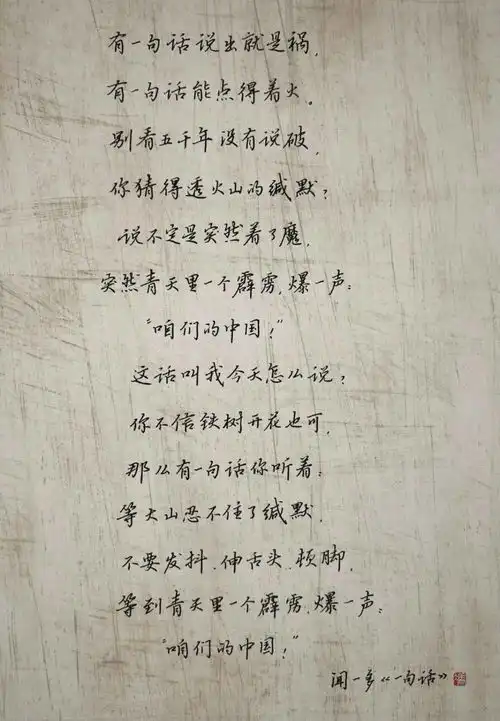 有一句话说出就是祸，
有一句话能点得着火。
别看五千年没有说破，
你猜得透火山的缄默？
说不定是突然着了魔，
突然青天里一个霹雳，爆一声：
“咱们的中国！”
这话叫我今天怎么说？
你不信铁树开花也可，
那么有一句话你听着：
等火山忍不住了缄默，
不要发抖、伸舌头、顿脚，
等到青天里一个霹雳，爆一声：
“咱们的中国！”
闻一多《一句话》